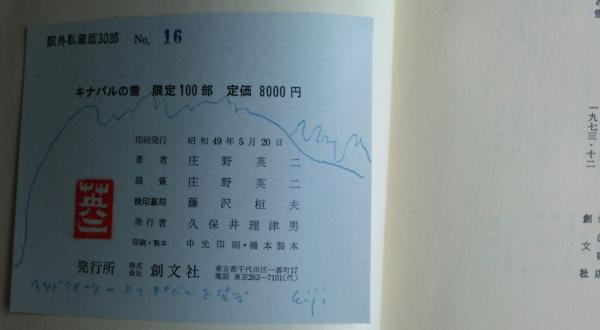 限外私蔵版30部 No. 16
キナバルの雪 限定100部 定価 8000円
印刷発行 昭和49年5月20日
著者 庄野英二
題簽 庄野英二
検印篆刻 藤沢桓夫
発行者 久保井理津男
印刷・製本 中光印刷・橋本製本
発行所 株式会社 創文社 東京都千代田区一番町17
電話 東京263-7101(代)
英二
ヘッドクォーターより キナバルを望む eiji
一九七三・十二
創文社